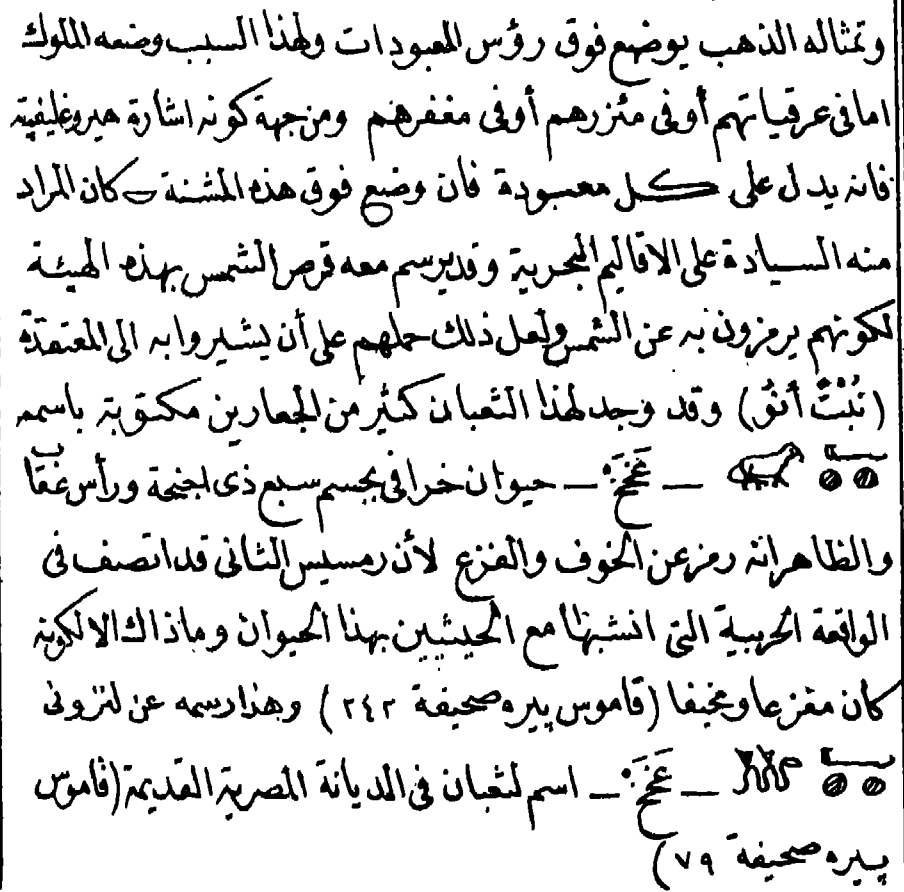 وتمثاله الذهب يوضع فوق رؤس المعبودات ولهذا السبب وضعه الملوك
اما في عرقياتهم أو في مئزرهم أو في مغفرهم ومن جهة كونه اشارة هيروغليفية
فانه يدل على كل معبودة فان وضع فوق هذه المشنة كان المراد
منه السيادة على الاقاليم البحرية وقد يرسم معه قرص الشمس بهذه الهيئة
لكونهم يرمزون به عن الشمس ولعل ذلك حملهم على أن يشيروا به الى المعتقدة
(نُبْتْ أَنْقُ) وقد وجد لهذا الثعبان كثير من الجعارين مكتوبة باسمه
ــ عَخَخْ ــ حيوان خرافي بجسم سبع ذى اجنحة ورأس عقاب
والظاهر انه رمز عن الخوف والفزع لأن رمسيس الثانى قد اتصف فى
الواقعة الحربية التى انشبها مع الحيثيين بهذا الحيوان وما ذاك الا لكونه
كان مفزعا ومخيفا (قاموس پيره صحيفة ٢٤٢) وهذا رسمه عن لنزونى
ــ عَخَخْ ــ اسم لثعبان فى الديانة المصرية القديمة (قاموس
پيره صحيفة ٧٩)